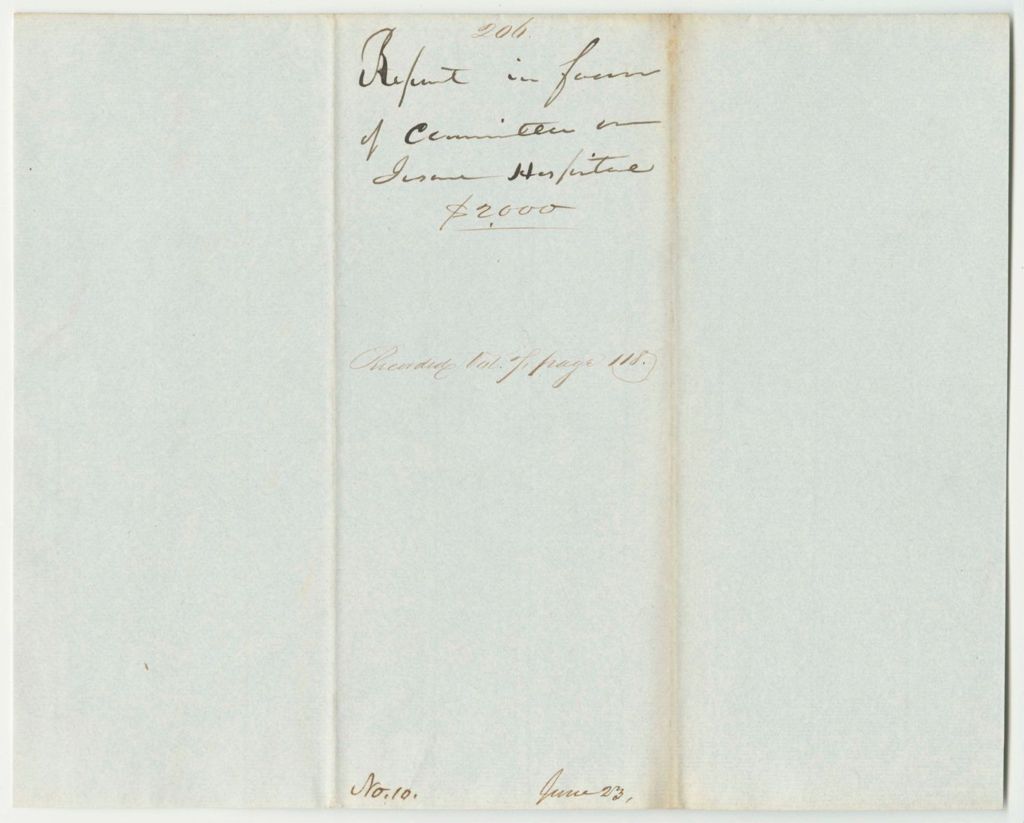 206.
Report in favor
of Committee on
Insane Hospital
$2,000
Recorded Vol. page 118.
No. 10. June 23,